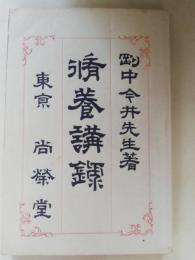 剛中今井先生著
脩養講録
東京 尚榮堂